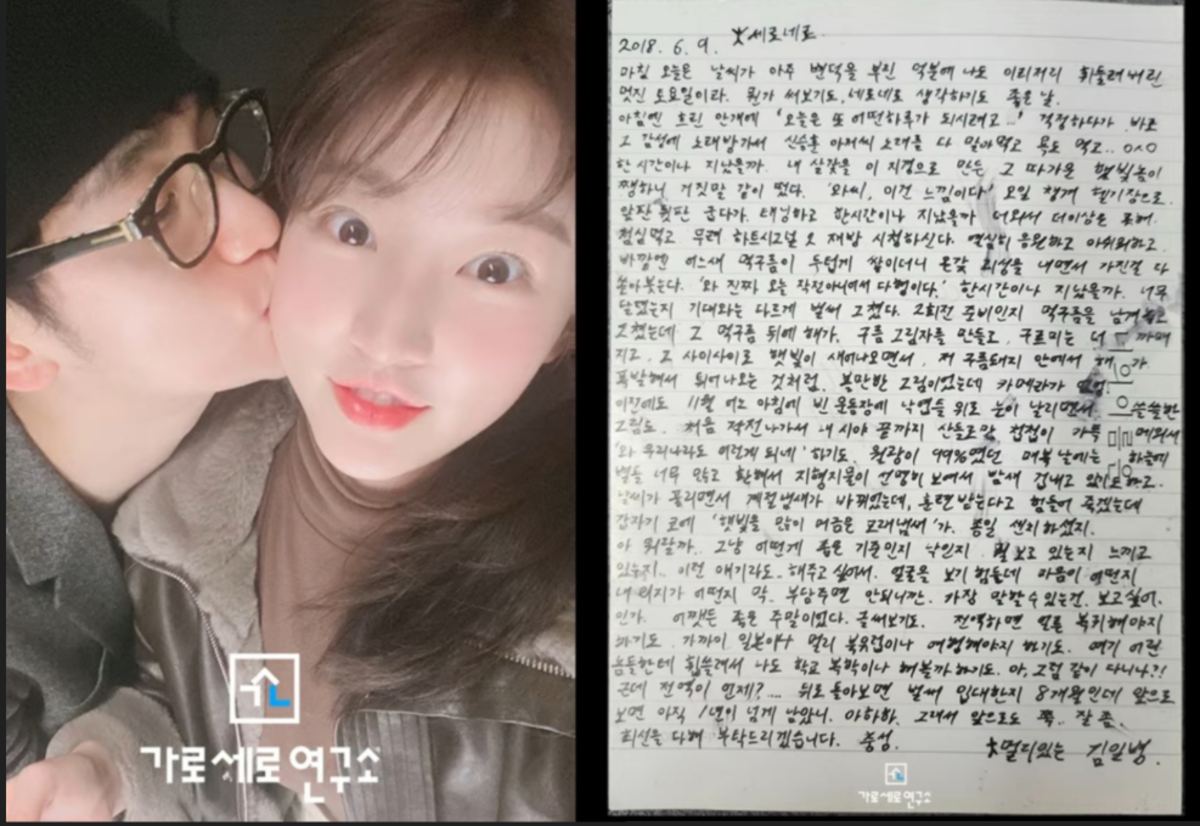 가로세로연구소
2018. 6. 9. 세로네로
마침 오늘은 날씨가 아주 변덕을 부린 덕분에 나도 이리저리 휘둘려버린
멋진 토요일이라. 뭔가 써보기도, 세로네로 생각하기도 좋은 날.
아침엔 흐린 안개에 '오늘은 또 어떤하루가 되시려고...' 걱정하다가 바로
그 감성에 노래방가서 신승훈 아저씨 노래를 다 말아먹고 욕도 먹고..
한 시간이나 지났을까. 내 살갗을 이 지경으로 만든 그 따가운 햇빛놈이
쨍하니 거짓말 같이 떴다. '와씨, 이건 느낌이다' 오일 챙겨 헬기장으로.
앞판 뒷판 굽다가. 태닝하고 한시간이나 지났을까 더워서 더이상은 못해.
점심먹고 무려 하트시그널 2 재방 시청하신다. 열심히 응원하고 아쉬워하고.
바깥엔 어느새 먹구름이 두텁게 쌓이더니 온갖 괴성을 내면서 가진걸 다
쏟아붓는다. '와 진짜 오늘 작전아니어서 다행이다.' 한시간이나 지났을까. 너무
달랬는지 기대와는 다르게 벌써 그쳤다. 2회전 준비인지 먹구름을 남겨놓고
그쳤는데 그 먹구름 뒤에 해가. 구름 그림자를 만들고, 구르미는 더 까매
지고. 그 사이사이로 햇빛이 새어나오면서, 저 구름돼지 안에서 해가
폭발해서 튀어나오는 것처럼. 볼만한 그림이었는데 카메라가
이전에도 11월 어느 아침에 빈 운동장에 낙엽들 위로 눈이 날리면서 쓸쓸한
그림도. 처음 작전나가서 내 시야 끝까지 산들로만 첩첩이 가득 메워서
'와 우리나라도 이렇게 되네' 하기도. 월광이 99%였던 매복 날에는 하늘에
별들 너무 많고 환해서 지형지물이 선명히 보여서 밤새 겁내고 있기도하고.
날씨가 풀리면서 계절냄새가 바뀌었는데, 훈련받는다고 힘들어 죽겠는데
갑자기 코에 '햇빛을 많이 머금은 모래냄새'가. 종일 센치하셨지.
아 뭐랄까.. 그냥 어떤게 좋은 기준인지 낙인지 뭘 보고 있는지 느끼고
있는지.. 이런 얘기라도.. 해주고 싶어서. 얼굴을 보기 힘든데 마음이 어떤지
내 의지가 어떤지 막.. 부담주면 안되니깐. 가장 말할수있는건. 보고싶어.
인가. 어쨌든 좋은 주말이었다. 글써보기도. 전역하면 얼른 복귀해야지
하기도. 가까이 일본이나 멀리 북유럽이나 여행해야지 하기도. 여기 어린
놈들한테 휩쓸려서 나도 학교 복학이나 해볼까하기도. 아, 그럼 같이 다니나?!
근데 전역이 언제?.... 뒤로 돌아보면 벌써 입대한지 8개월인데 앞으로
보면 아직 1년이 넘게 남았니. 아하하. 그래서 앞으로도 쭉.. 잘 좀.
최선을 다해 부탁드리겠습니다. 충성.
멀리있는 김일병.
가로세로연구소